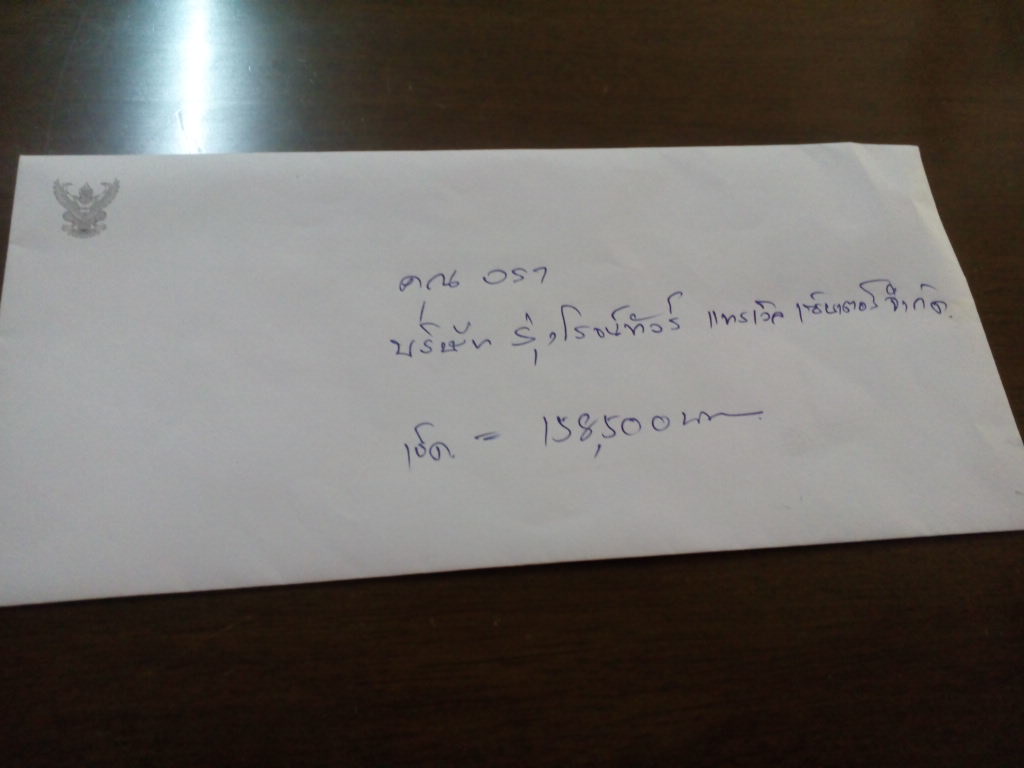 คุณ อรา
บริษัท รุ่งโรจน์ทัวร์ แทรเวิล เซ็นเตอร์ จำกัด
เช็ค = 158,500 บาท